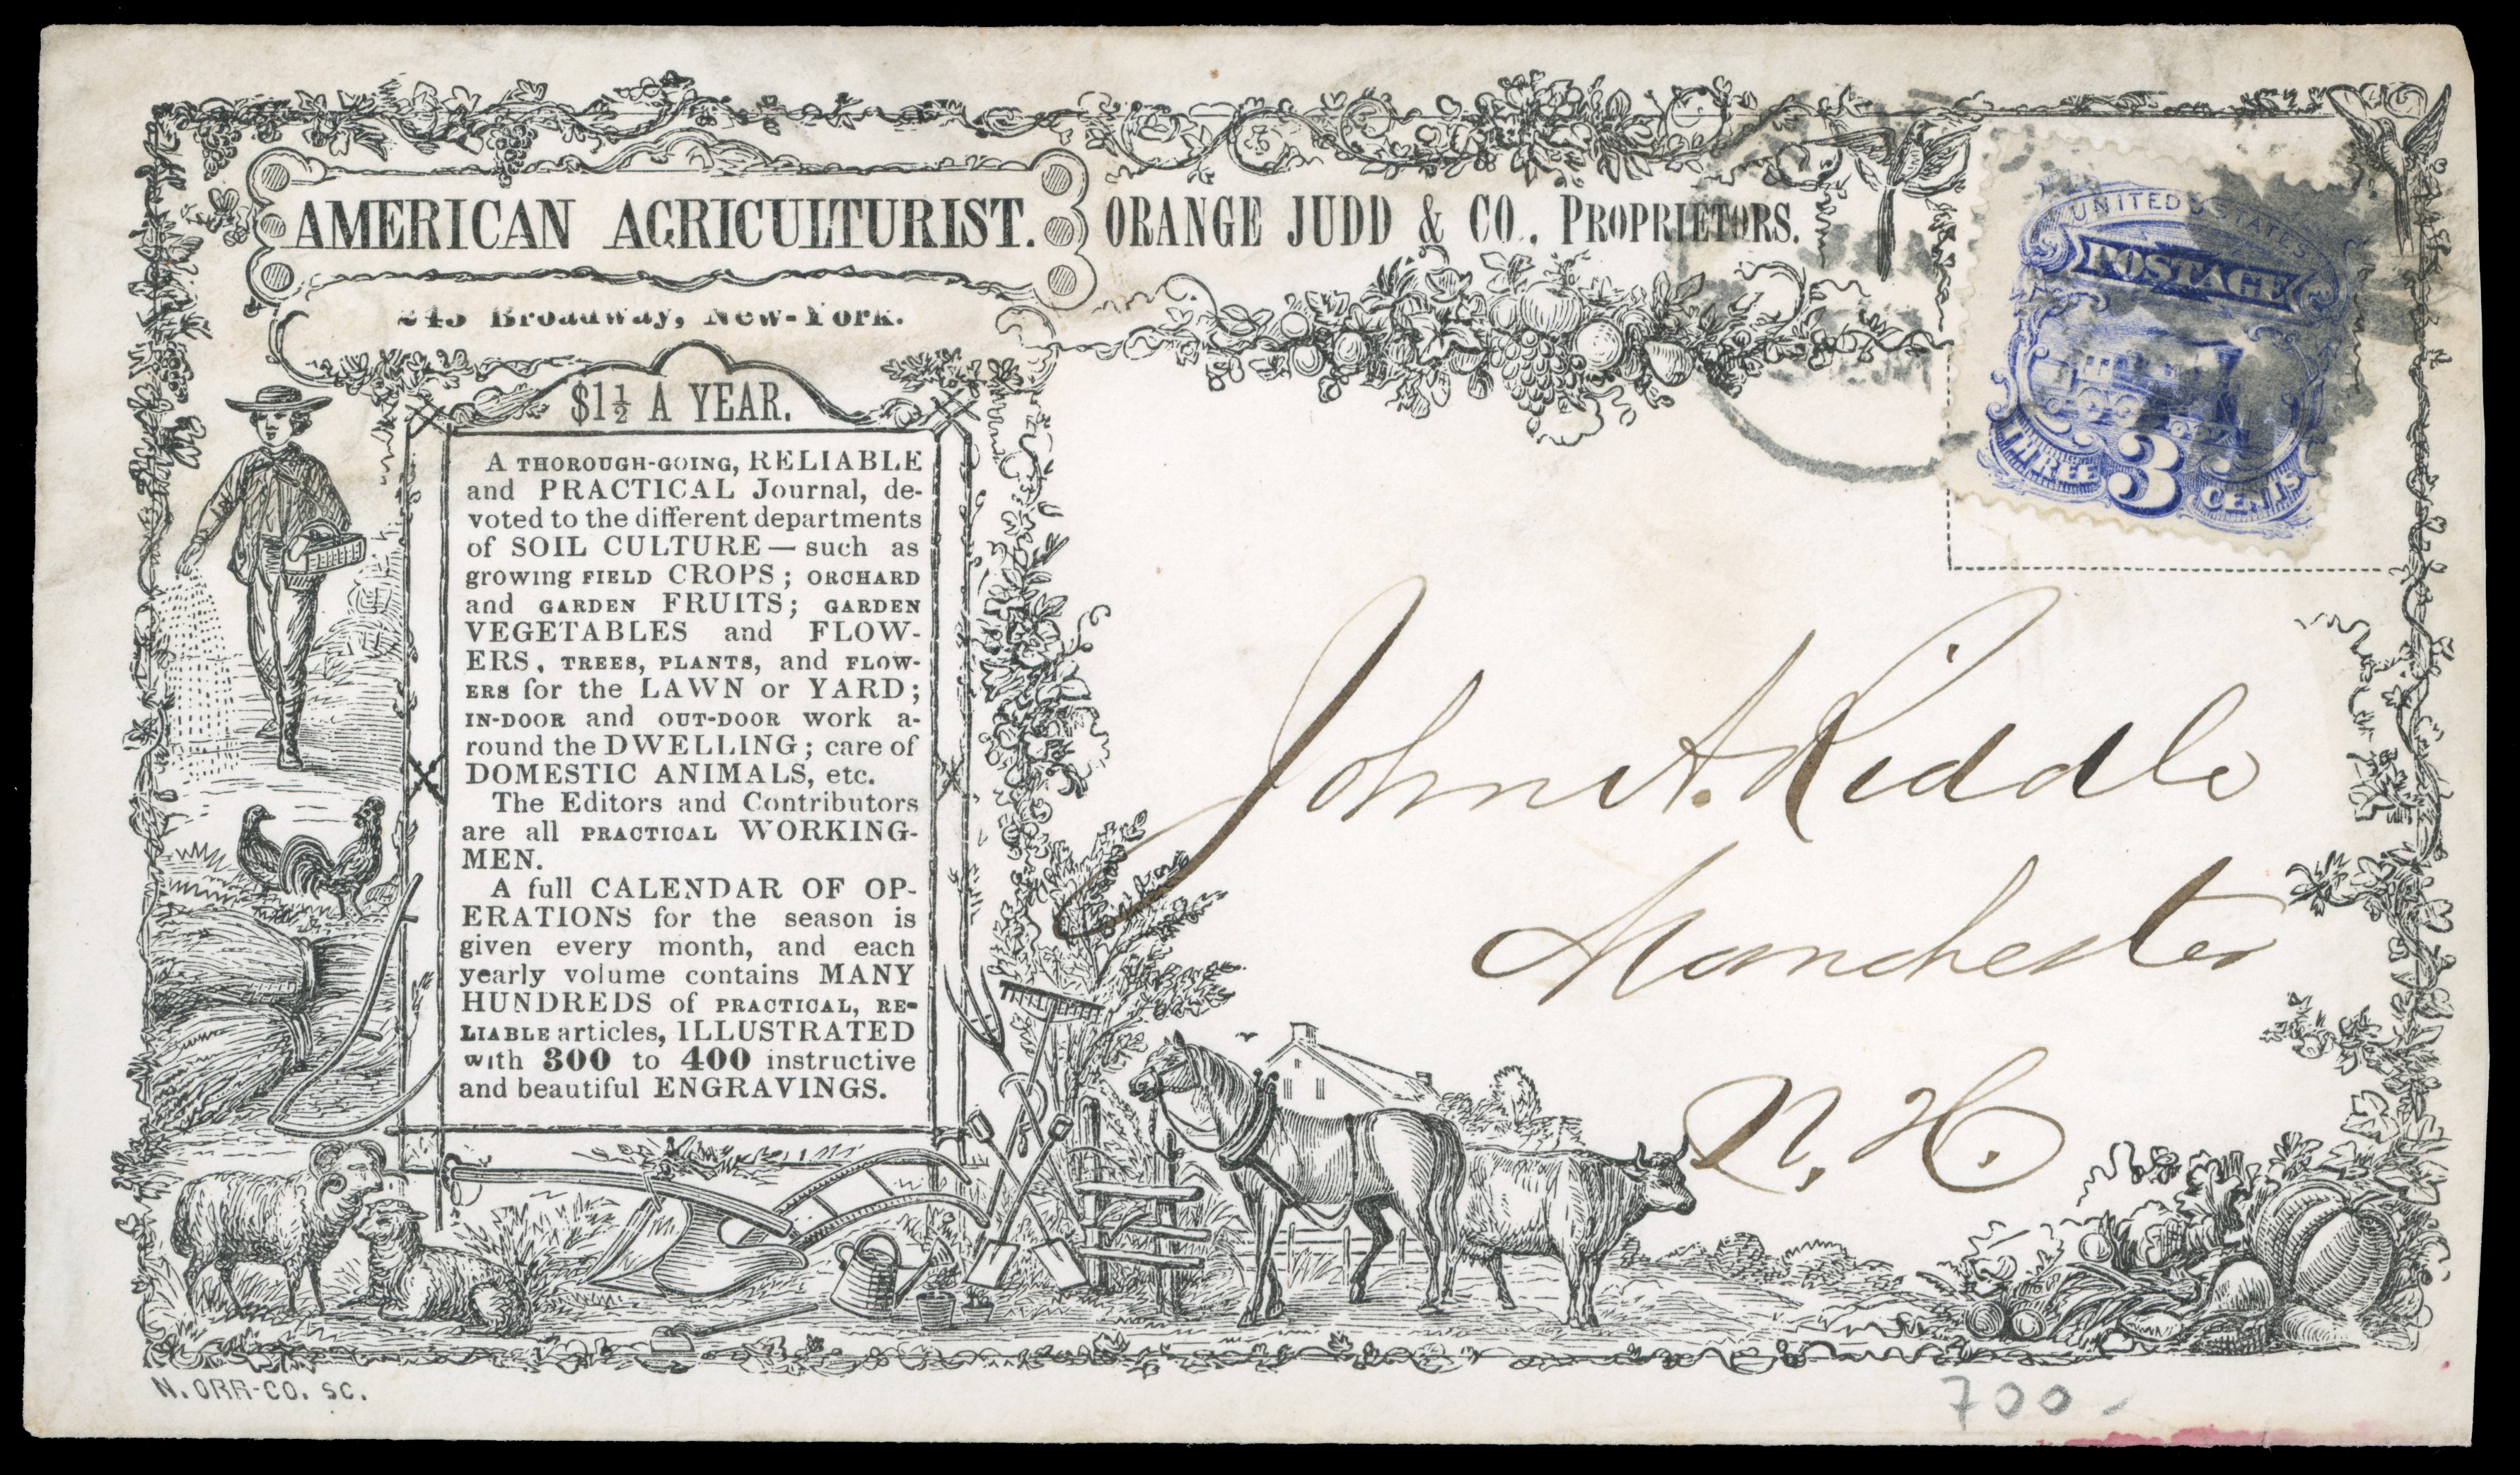 AMERICAN AGRICULTURIST. ORANGE JUDD & CO., PROPRIETORS.
245 Broadway, New-York.
$1½ A YEAR.
A THOROUGH-GOING, RELIABLE
and PRACTICAL Journal, de-
voted to the different departments
of SOIL CULTURE — such as
growing FIELD CROPS; ORCHARD
and GARDEN FRUITS; GARDEN
VEGETABLES and FLOW-
ERS, TREES, PLANTS, and FLOW-
ERS for the LAWN or YARD;
IN-DOOR and OUT-DOOR work a-
round the DWELLING; care of
DOMESTIC ANIMALS, etc.
The Editors and Contributors
are all PRACTICAL WORKING-
MEN.
A full CALENDAR OF OP-
ERATIONS for the season is
given every month, and each
yearly volume contains MANY
HUNDREDS of PRACTICAL, RE-
LIABLE articles, ILLUSTRATED
with 300 to 400 instructive
and beautiful ENGRAVINGS.
UNITED STATES
POSTAGE
THREE 3 CENTS
John A. Riddle
Manchester
N. H.
N. ORR-CO. SC.
700-